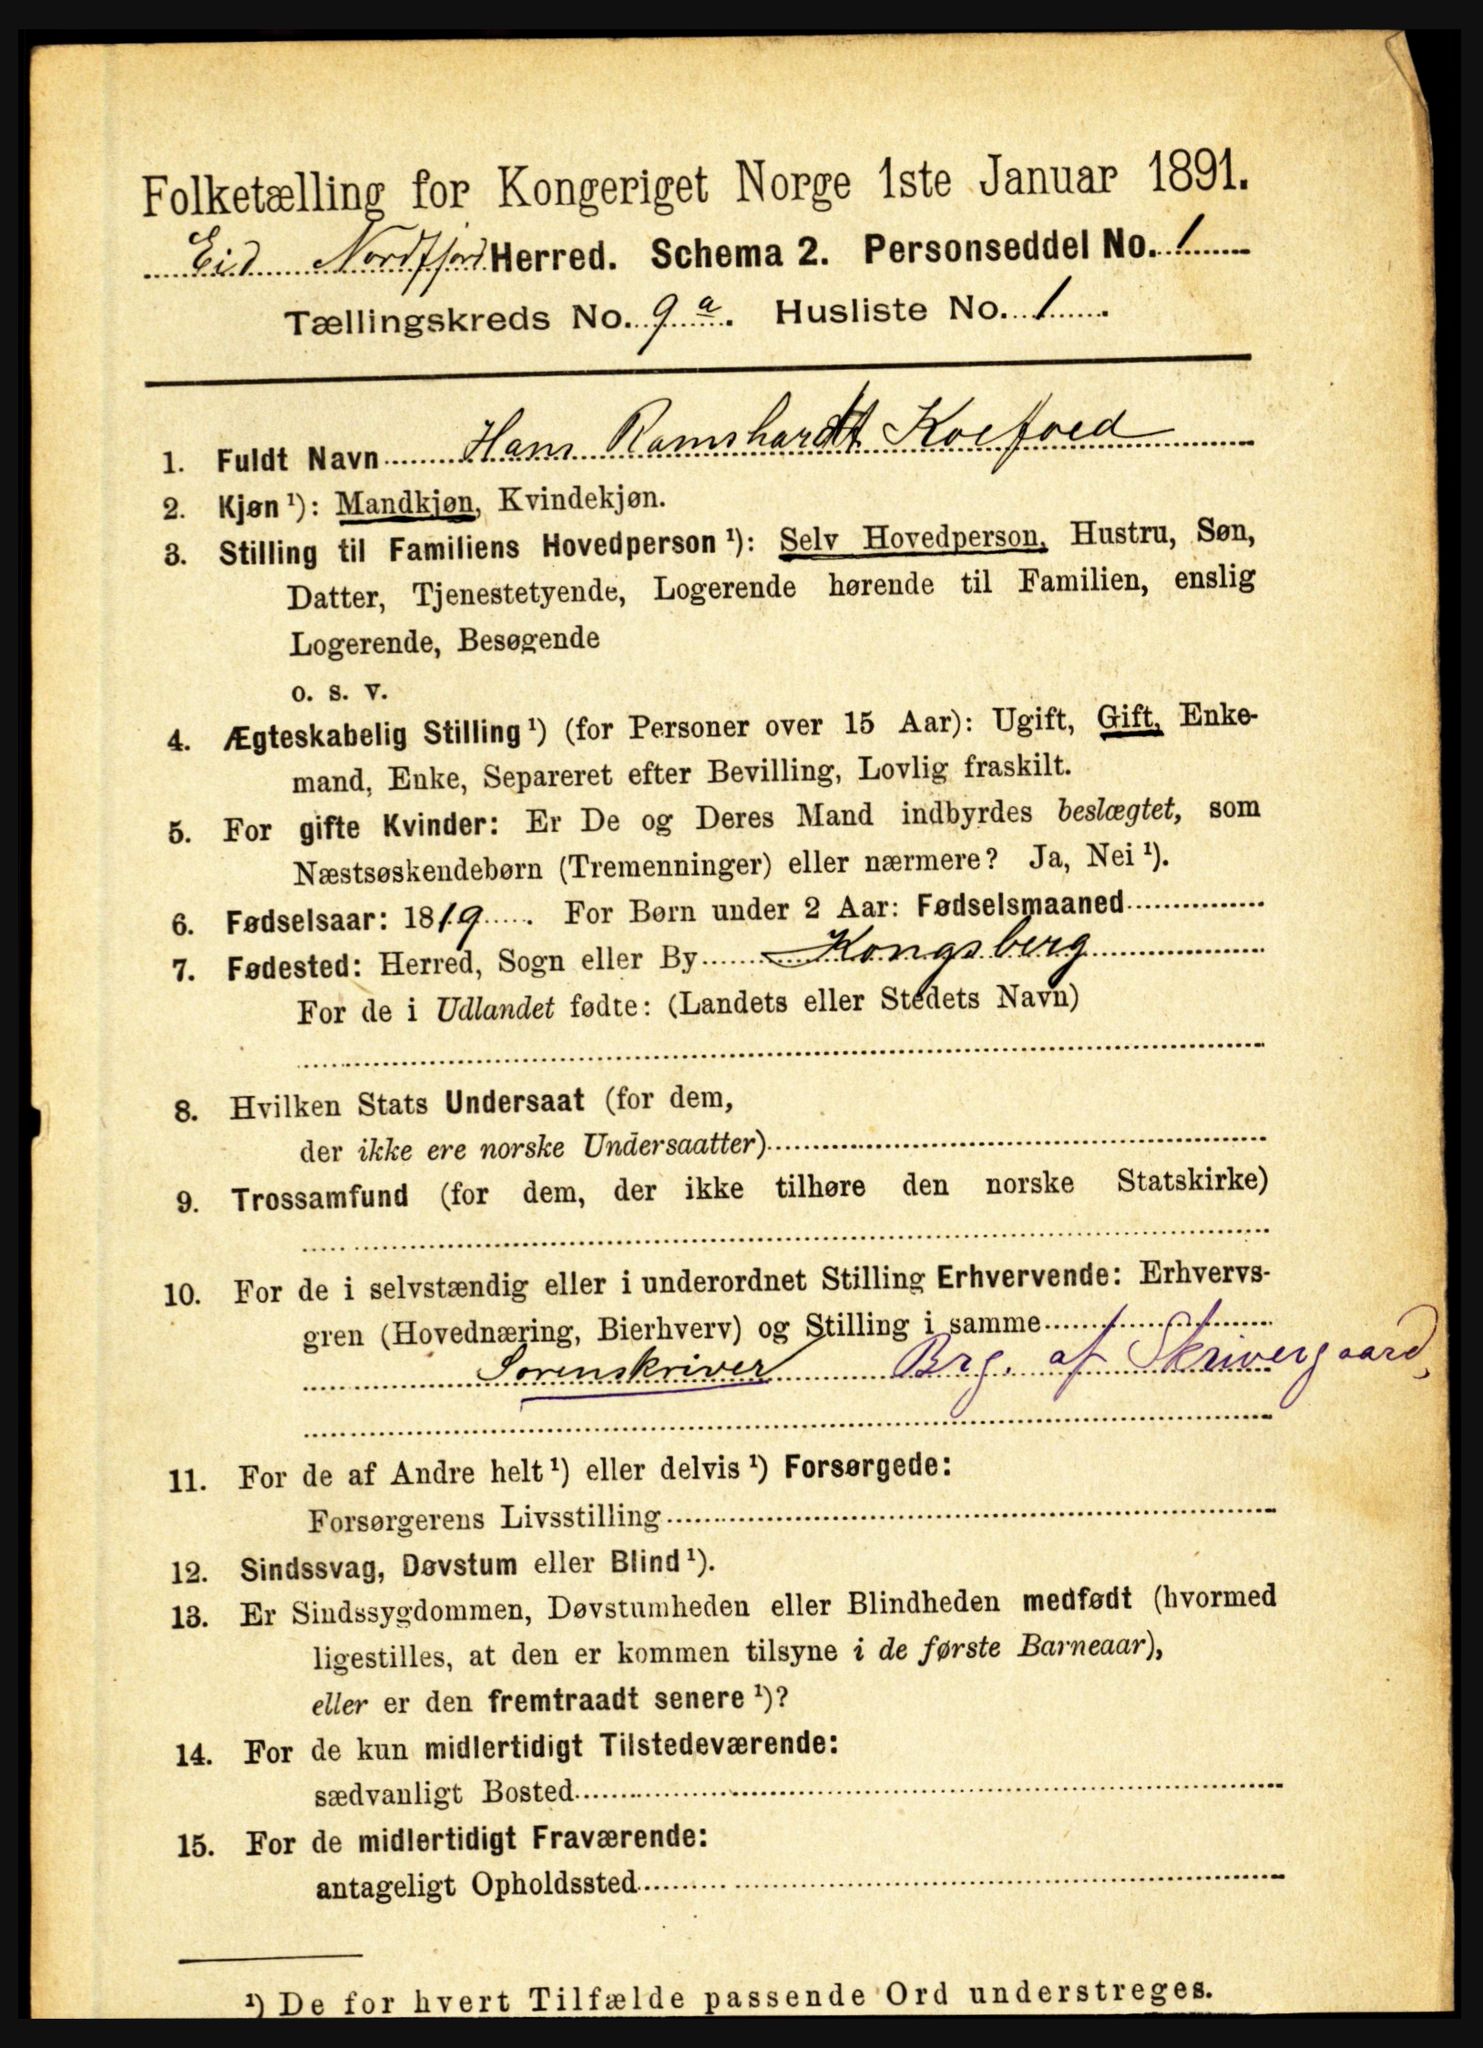 Folketælling for Kongeriget Norge 1ste Januar 1891.
Eid Nordfjord Herred. Schema 2. Personseddel No. 1
Tællingskreds No. 9 a. Husliste No. 1
1. Fuldt Navn Hans Ramshardt Koefoed
2. Kjøn ¹): Mandkjøn, Kvindekjøn.
3. Stilling til Familiens Hovedperson ¹): Selv Hovedperson, Hustru, Søn,
Datter, Tjenestetyende, Logerende hørende til Familien, enslig
Logerende, Besøgende
o. s. v.
4. Ægteskabelig Stilling ¹) (for Personer over 15 Aar): Ugift, Gift, Enke-
mand, Enke, Separeret efter Bevilling, Lovlig fraskilt.
5. For gifte Kvinder: Er De og Deres Mand indbyrdes beslægtet, som
Næstsøskendebørn (Tremenninger) eller nærmere? Ja, Nei ¹).
6. Fødselsaar: 1819. For Børn under 2 Aar: Fødselsmaaned
7. Fødested: Herred, Sogn eller By Kongsberg
For de i Udlandet fødte: (Landets eller Stedets Navn)
8. Hvilken Stats Undersaat (for dem,
der ikke ere norske Undersaatter)
9. Trossamfund (for dem, der ikke tilhøre den norske Statskirke)
10. For de i selvstændig eller i underordnet Stilling Erhvervende: Erhvervs-
gren (Hovednæring, Bierhverv) og Stilling i samme
Sorenskriver Brg. af Skrivergaard,
11. For de af Andre helt ¹) eller delvis ¹) Forsørgede:
Forsørgerens Livsstilling
12. Sindssvag, Døvstum eller Blind ¹).
13. Er Sindssygdommen, Døvstumheden eller Blindheden medfødt (hvormed
ligestilles, at den er kommen tilsyne i de første Barneaar),
eller er den fremtraadt senere ¹)?
14. For de kun midlertidigt Tilstedeværende:
sædvanligt Bosted
15. For de midlertidigt Fraværende:
antageligt Opholdssted
¹) De for hvert Tilfælde passende Ord understreges.